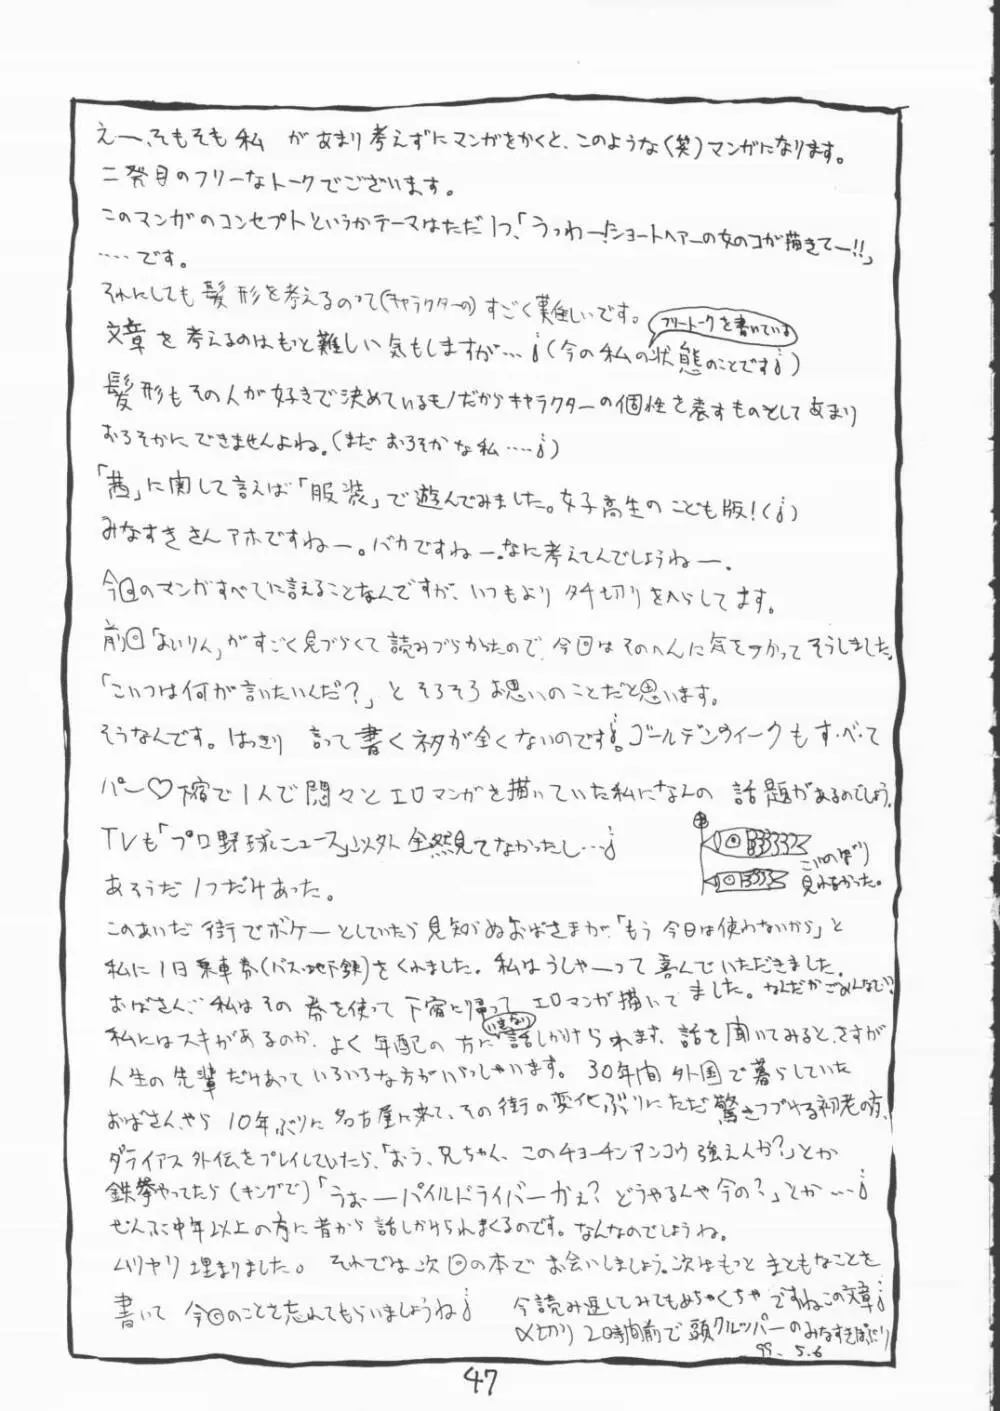 えー、そもそも私 があまり考えずにマンガをかくと、このような(笑)マンガになります。
二発目のフリーなトークでございます。
このマンガのコンセプトというかテーマはただ1つ、「うっわー!ショートヘアーの女のコが描きてー!!」
‥‥です。
それにしても髪形を考えるのって(キャラクターの)すごく難しいです。
フリートークを書いている
文章を考えるのはもっと難しい気もしますが…(今の私の状態のことです)
髪形もその人が好きで決めているモノだからキャラクターの個性を表すものとしてあまり
おろそかにできませんよね。(まだおろそかな私‥‥)
「茜」に関して言えば「服装」で遊んでみました。女子高生のこども版!()
みなすきさんアホですねー。バカですねー。なに考えてんでしょうねー。
今回のマンガすべてに言えることなんですが、いつもよりタチ切りをへらしてます。
前回「よいりん」がすごく見づらくて読みづらかったので、今回はそのへんに気をつかってそうしました。
「こいつは何が言いたいんだ?」とそろそろお思いのことだと思います。
そうなんです。はっきり言って書くネタが全くないのです。ゴールデンウィークもす・べ・て
パー♡下宿で1人で悶々とエロマンガを描いていた私になんの話題があるのでしょう。
TVも「プロ野球ニュース」以外全然見てなかったし…
こいのぼり
見れなかった。
あそうだ1つだけあった。
このあいだ街でボケーとしていたら見知らぬおばさまが、「もう今日は使わないから」と
私に1日乗車券(バス・地下鉄)をくれました。私はうしゃーって喜んでいただきました。
おばさん、私はその券を使って下宿に帰ってエロマンガ描いてました。なんだかごめんなさい
私にはスキがあるのか、よく年配の方にいきなり話しかけられます。話を聞いてみると、さすが
人生の先輩だけあっていろいろな方がいらっしゃいます。30年間外国で暮らしていた
おばさんやら10年ぶりに名古屋に来て、その街の変化ぶりにただ驚きつづける初老の方、
ダライアス外伝をプレイしていたら、「おう、兄ちゃん、このチョーチンアンコウ強えんか?」とか
鉄拳やってたら(キングで)「うおーーパイルドライバーかぇ?どうやるんや今の?」とか…
ぜんぶ中年以上の方に昔から話しかけられまくるのです。なんなのでしょうね。
ムリヤリ埋まりました。それでは次回の本でお会いしましょう。次はもっとまともなことを
書いて今回のことを忘れてもらいましょうね
今読み返してみてもめちゃくちゃですねこの文章
〆切り20時間前で頭クルッパーのみなすきぽぷり
99. 5.6
47